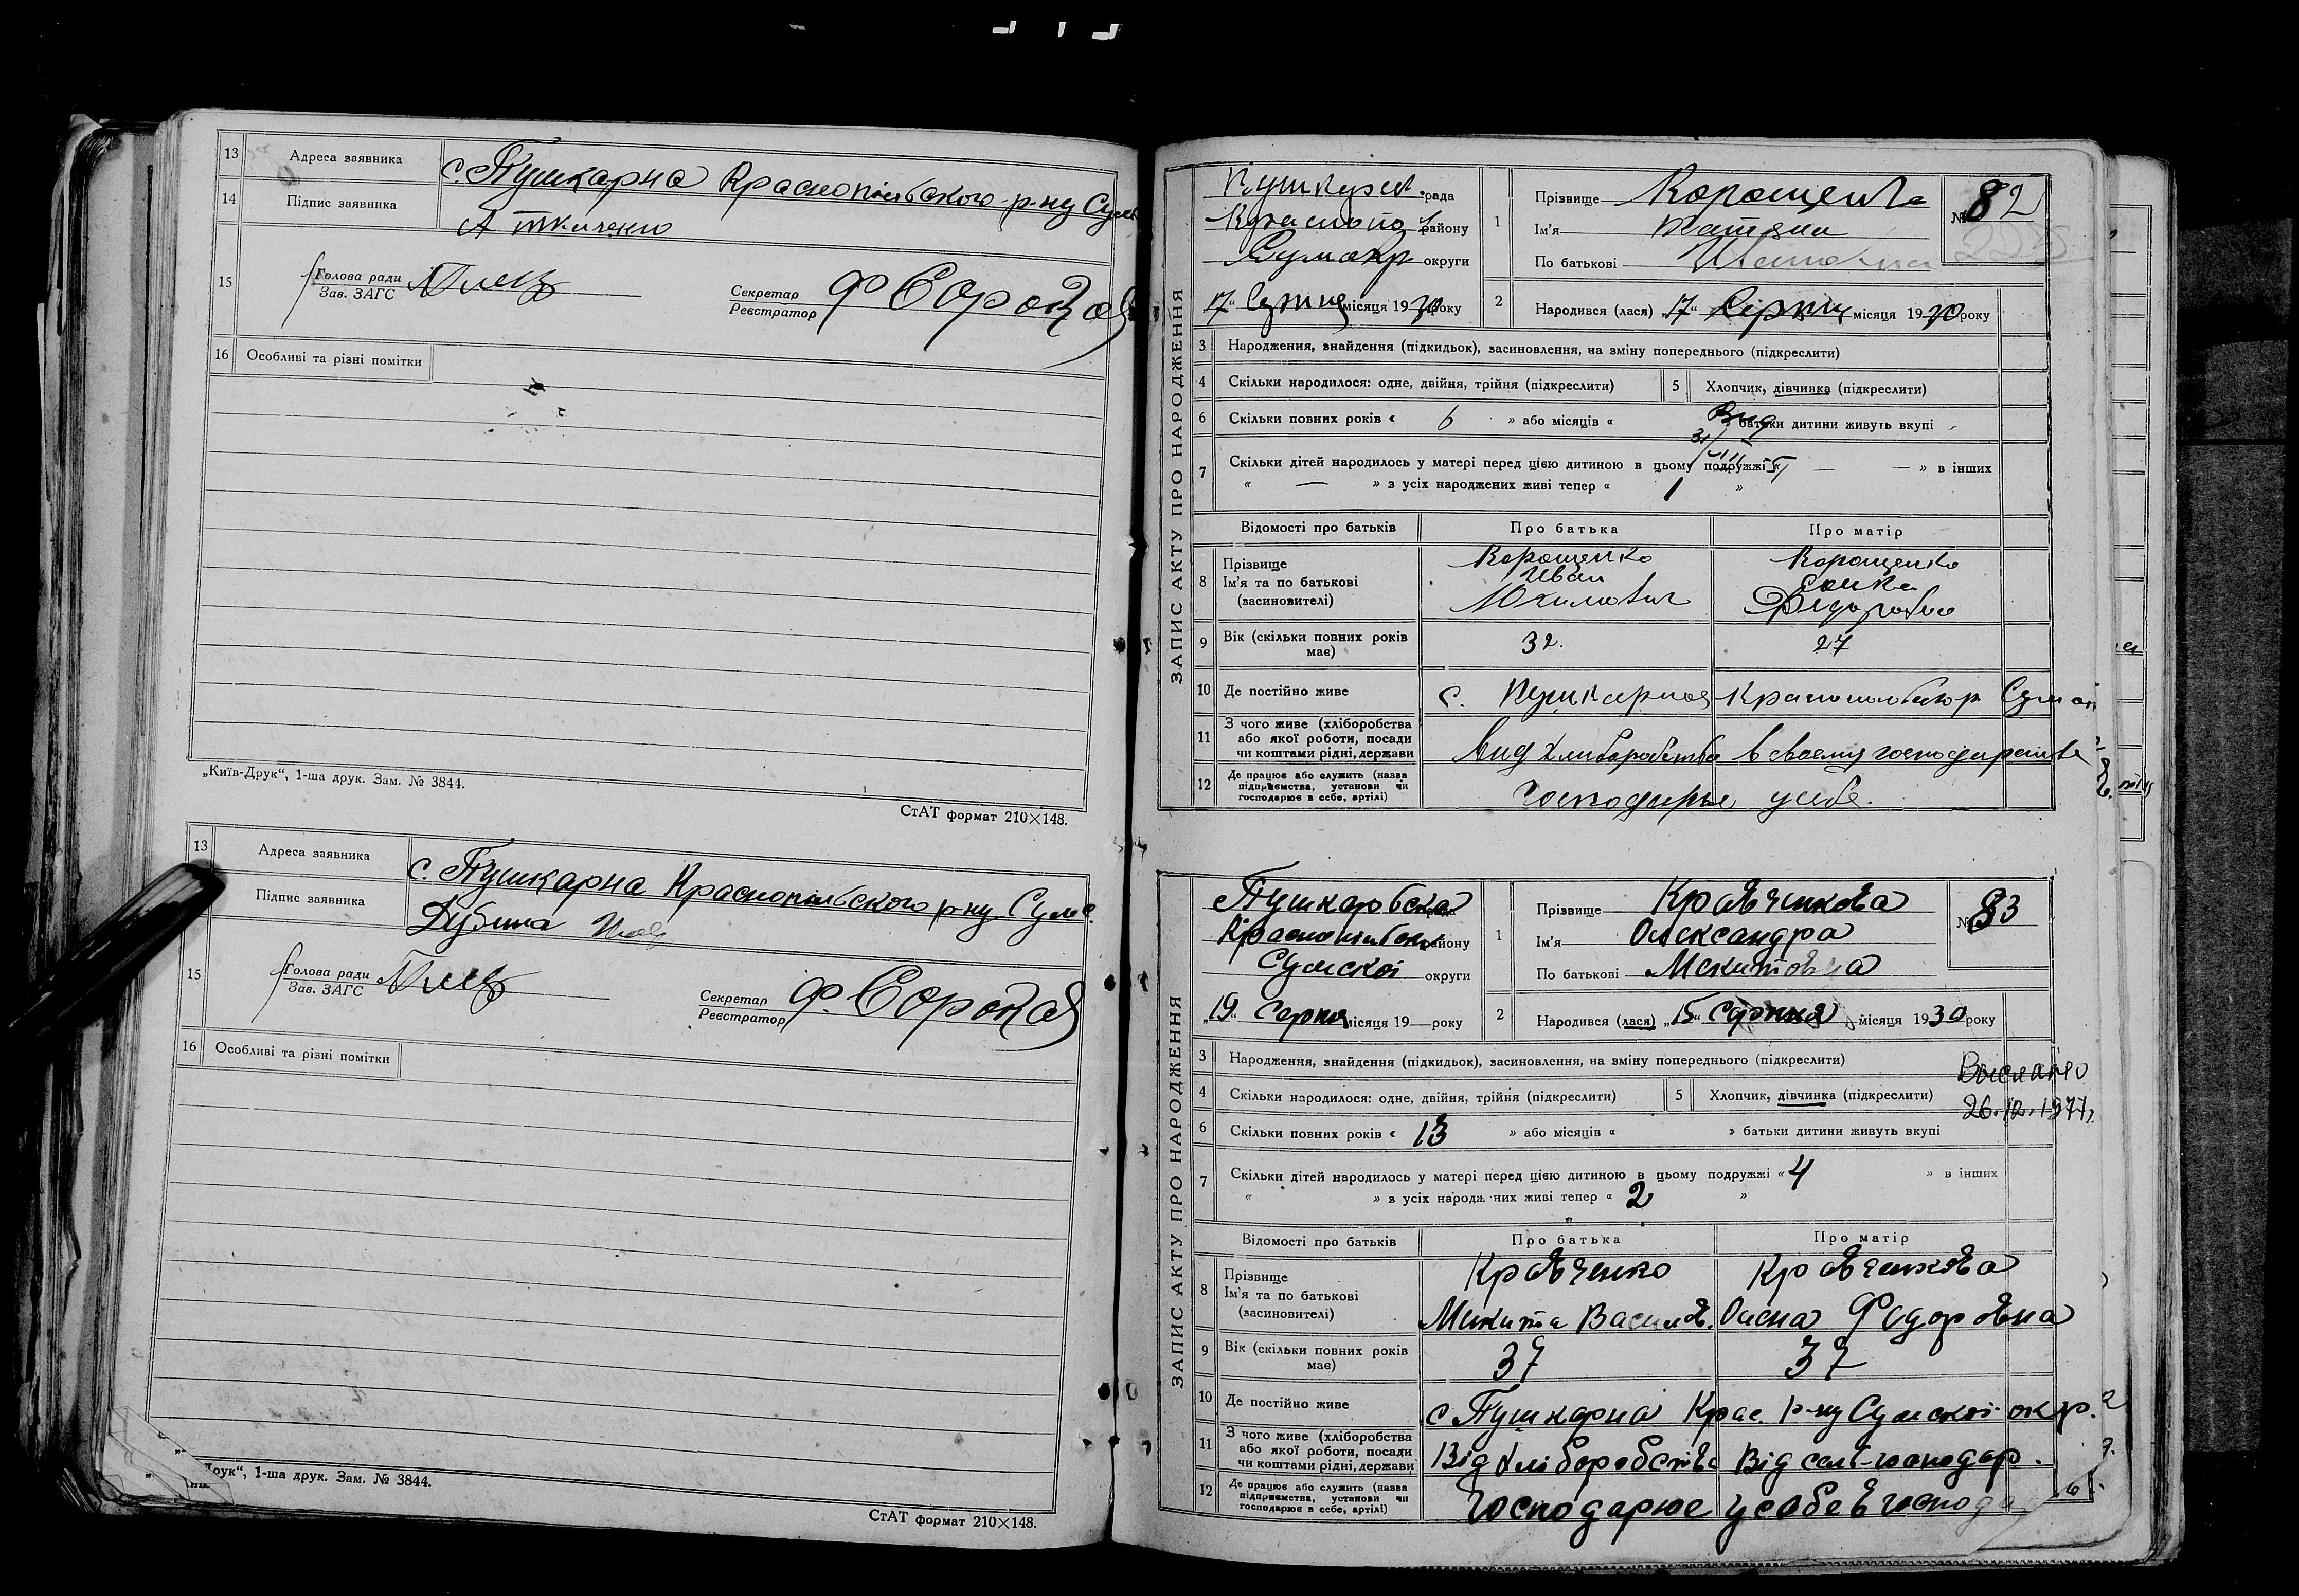 13 Адреса заявника с. Пушкарна Краснопільського р-ну Сум
14 Підпис заявника А Ткаченко
15 Голова ради
Зав. ЗАГС
Секретар
Реєстратор
16 Особливі та різні помітки
„Київ-Друк“, 1-ша друк. Зам. № 3844.
СтАТ формат 210×148.
13 Адреса заявника с. Пушкарна Краснопільського р-ну Сумс.
Підпис заявника Дубина
15 Голова ради
Зав. ЗАГС
Секретар
Реєстратор
16 Особливі та різні помітки
друк“, 1-ша друк. Зам. № 3844.
СтАТ формат 210×148.
ЗАПИС АКТУ ПРО НАРОДЖЕННЯ
рада
району
округи
17 місяця 1930 року
№ 82
1 Прізвище
Ім'я
По батькові
2 Народився (лася) „17“ Серпня місяця 1930 року
3 Народження, знайдення (підкидьок), засиновлення, на зміну попереднього (підкреслити)
4 Скільки народилося: одне, двійня, трійня (підкреслити) 5 Хлопчик, дівчинка (підкреслити)
6 Скільки повних років « 6 » або місяців « » батьки дитини живуть вкупі
7 Скільки дітей народилось у матері перед цією дитиною в цьому подружжі « — » в інших
« — » з усіх народжених живі тепер « 1 »
Відомості про батьків Про батька Про матір
8 Прізвище Корощенко Корощенко
Ім'я та по батькові Иван
(засновителі) Федоровна
9 Вік (скільки повних років має) 32. 27
10 Де постійно живе с. Пушкарная
11 З чого живе (хліборобства
або якої роботи, посади
чи коштами рідні, держави
12 Де працює або служить (назва
підприємства, установи чи
господарює в себе, артілі)
ЗАПИС АКТУ ПРО НАРОДЖЕННЯ
Пушкарбська
району
Сумскої округи
„19“ Серпня місяця 19 року
№ 83
1 Прізвище Кравченкова
Ім'я Олександра
По батькові Микитовна
2 Народився (лася) „15“ Серпня місяця 1930 року
3 Народження, знайдення (підкидьок), засиновлення, на зміну попереднього (підкреслити)
Выслано
26.12.1977г.
4 Скільки народилося: одне, двійня, трійня (підкреслити) 5 Хлопчик, дівчинка (підкреслити)
6 Скільки повних років « 13 » або місяців « » батьки дитини живуть вкупі
7 Скільки дітей народилось у матері перед цією дитиною в цьому подружжі « 4 » в інших
« » з усіх народжених живі тепер « 2 »
Відомості про батьків Про батька Про матір
8 Прізвище Кравченко Кравченкова
Ім'я та по батькові
(засиновителі) Микита Василов. Олена Федоровна
9 Вік (скільки повних років має) 37 37
10 Де постійно живе с Пушкарна Крас. р-ну Сумскої окр.
11 З чого живе (хліборобства
або якої роботи, посади
чи коштами рідні, держави Від хліборобства Від сель-господар.
12 Де працює або служить (назва
підприємства, установи чи
господарює в себе, артілі) Господарює у себе в господ